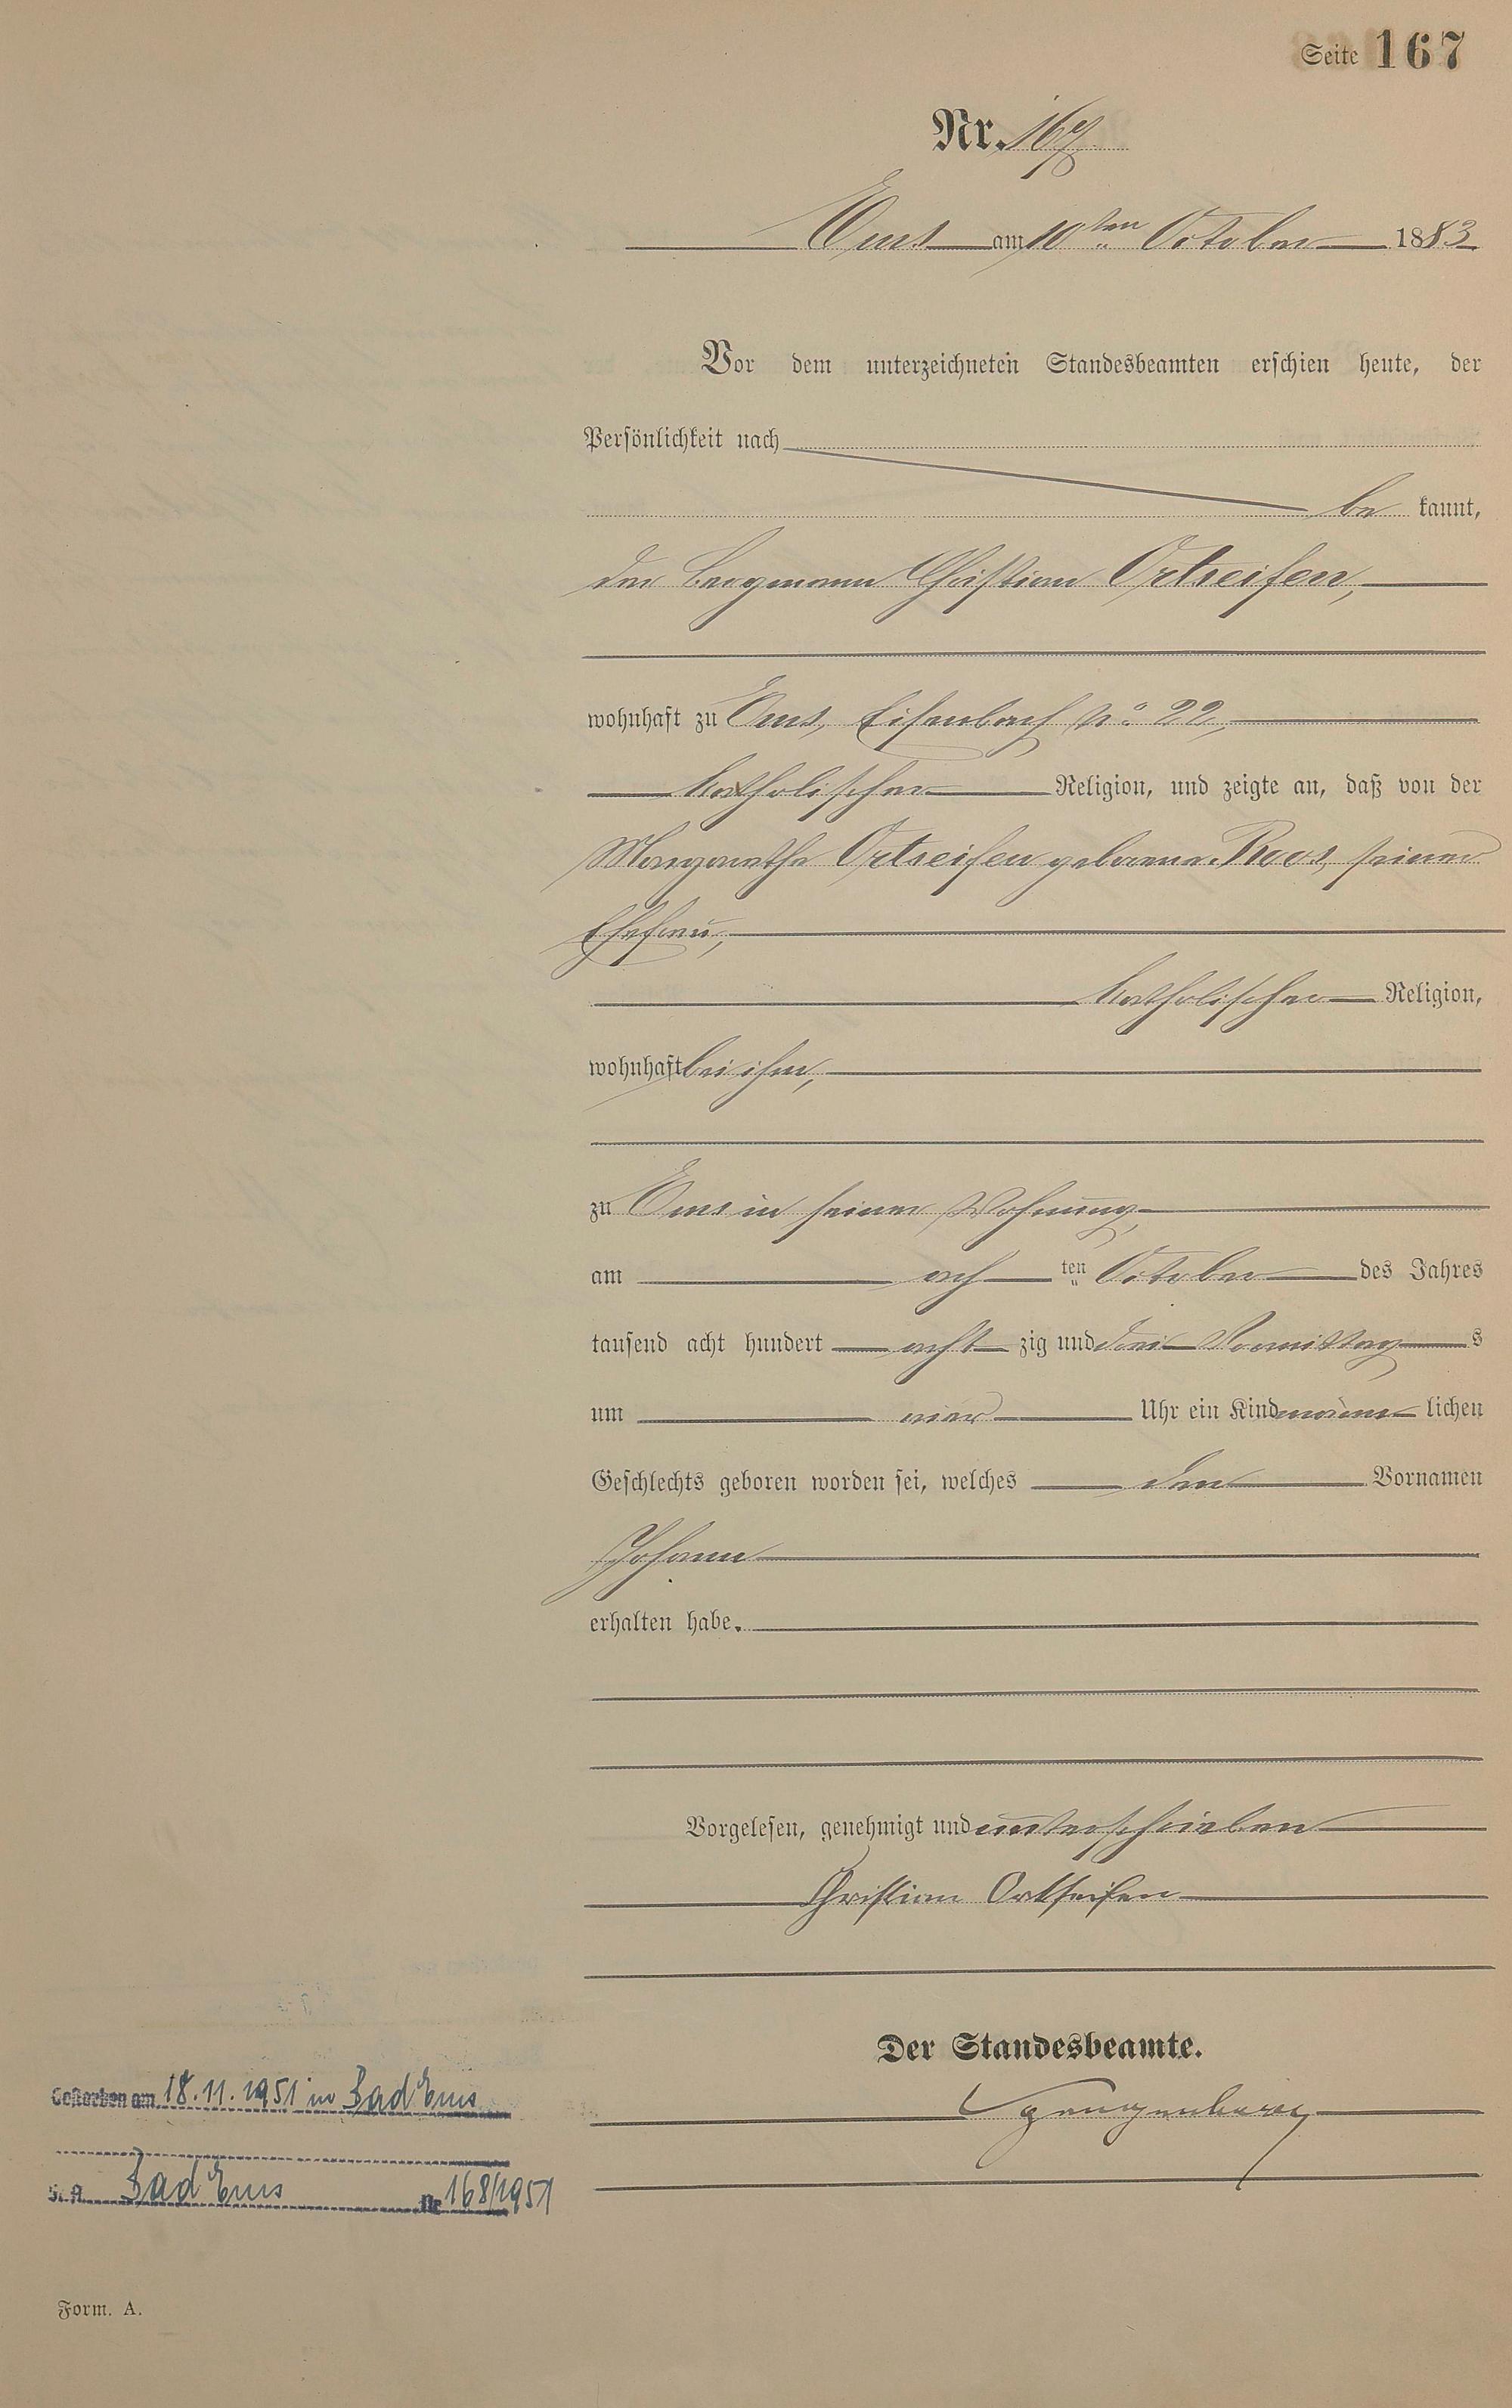 Seite 167
Nr. 167
Ems am 10ten October 1883
Vor dem unterzeichneten Standesbeamten erschien heute, der
Persönlichkeit nach
be kannt,
der Bergmann Christian Ortseifen,
wohnhaft zu Ems, Eisenbach No. 22,
katholischer Religion, und zeigte an, daß von der
Margarethe Ortseifen geborene Roos, seiner
Ehefrau,
katholischer Religion,
wohnhaft bei ihm,
zu Ems in seiner Wohnung,
am ach ten October des Jahres
tausend acht hundert acht zig und drei Vormittag s
um vier Uhr ein Kind männ lichen
Geschlechts geboren worden sei, welches den Vornamen
Johann
erhalten habe.
Vorgelesen, genehmigt und unterschrieben
Christian Ortseifen
Der Standesbeamte.
Gestorben am 18.11.1951 in Bad Ems
St. A. Bad Ems Nr. 168/1951
Form. A.